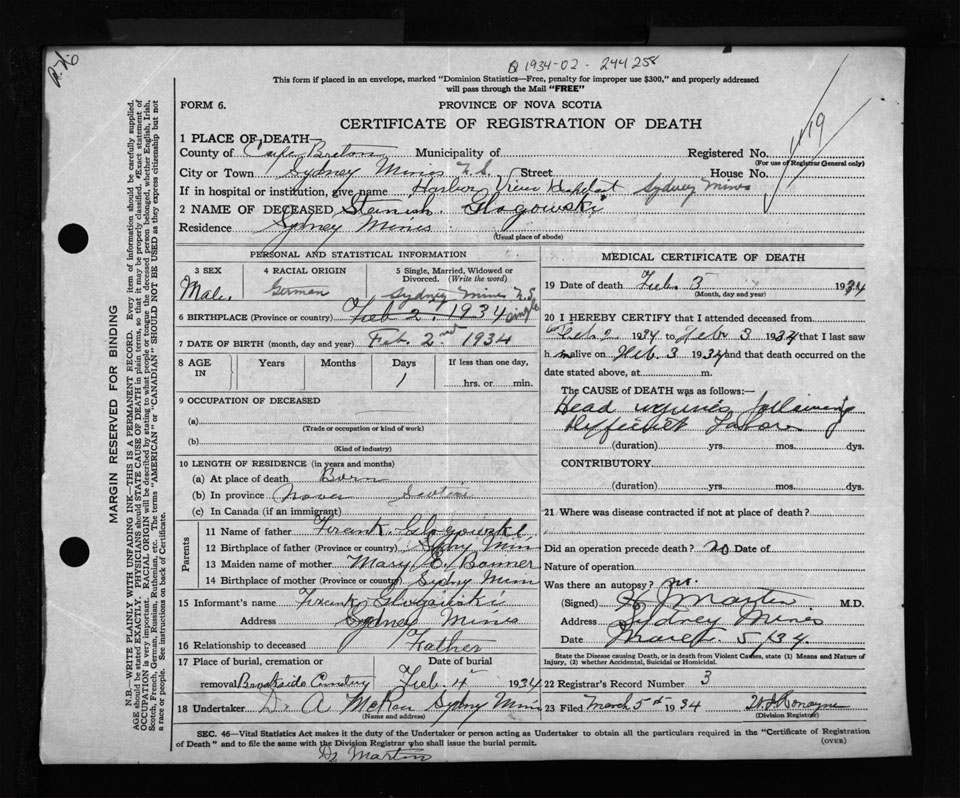 1934-02-244258
This form if placed in an envelope, marked "Dominion Statistics—Free, penalty for improper use $300," and properly addressed
will pass through the Mail "FREE"
FORM 6. PROVINCE OF NOVA SCOTIA
CERTIFICATE OF REGISTRATION OF DEATH
1 PLACE OF DEATH
County of Cape Breton Municipality of Registered No. 419
(For use of Registrar General only)
City or Town Sydney Mines N.S. Street House No.
If in hospital or institution, give name Harbor View Hospital Sydney Mines
2 NAME OF DECEASED Glogowski
Residence Sydney Mines
(Usual place of abode)
PERSONAL AND STATISTICAL INFORMATION
3 SEX 4 RACIAL ORIGIN 5 Single, Married, Widowed or Divorced. (Write the word)
Male. German single
Sydney Mines N.S.
6 BIRTHPLACE (Province or country) Feb 2. 1934
7 DATE OF BIRTH (month, day and year) Feb. 2nd 1934
8 AGE IN Years Months Days If less than one day,
1 hrs. or min.
9 OCCUPATION OF DECEASED
(a)
(Trade or occupation or kind of work)
(b)
(Kind of industry)
10 LENGTH OF RESIDENCE (in years and months)
(a) At place of death Born
(b) In province Nova Scotia
(c) In Canada (if an immigrant)
Parents
11 Name of father Frank Glogowski
12 Birthplace of father (Province or country) Sydny Min
13 Maiden name of mother Mary E. Bonner
14 Birthplace of mother (Province or country) Sydny Mines
15 Informant's name Frank Glogowski
Address Sydney Mines
16 Relationship to deceased Father
17 Place of burial, cremation or Date of burial
removal Brookside Cemetery Feb 4 1934
18 Undertaker Dr A McRae Sydny Min
(Name and address)
MEDICAL CERTIFICATE OF DEATH
19 Date of death Feb. 5 1934
(Month, day and year)
20 I HEREBY CERTIFY that I attended deceased from
Feb 2 1934 to Feb 3 1934 that I last saw
h im alive on Feb 3 1934 and that death occurred on the
date stated above, at m.
The CAUSE OF DEATH was as follows:—
Head injuries following
Difficult Labor
(duration) yrs. mos. dys.
CONTRIBUTORY
(duration) yrs. mos. dys.
21 Where was disease contracted if not at place of death?
Did an operation precede death? no Date of
Nature of operation
Was there an autopsy? no.
(Signed) Martin M.D.
Address Sydney Mines
Date March 5/34.
State the Disease causing Death, or in death from Violent Causes, state (1) Means and Nature of
Injury, (2) whether Accidental, Suicidal or Homicidal.
22 Registrar's Record Number 3
23 Filed March 5th 1934 Ronayne
(Division Registrar)
SEC. 46—Vital Statistics Act makes it the duty of the Undertaker or person acting as Undertaker to obtain all the particulars required in the "Certificate of Registration
of Death" and to file the same with the Division Registrar who shall issue the burial permit. (OVER)
Dr Martin
MARGIN RESERVED FOR BINDING
N.B.—WRITE PLAINLY WITH UNFADING INK—THIS IS A PERMANENT RECORD. Every item of information should be carefully supplied.
AGE should be stated EXACTLY. PHYSICIANS should STATE CAUSE OF DEATH in plain terms, so that it may be properly classified. Exact statement of
OCCUPATION is very important. RACIAL ORIGIN will be described by stating to what people or tongue the deceased person belonged, whether English, Irish,
Scotch, French, German, Russian, Ruthenian, etc. The terms "AMERICAN" or "CANADIAN" SHOULD NOT BE USED as they express citizenship but not
a race or people. See instructions on back of Certificate.